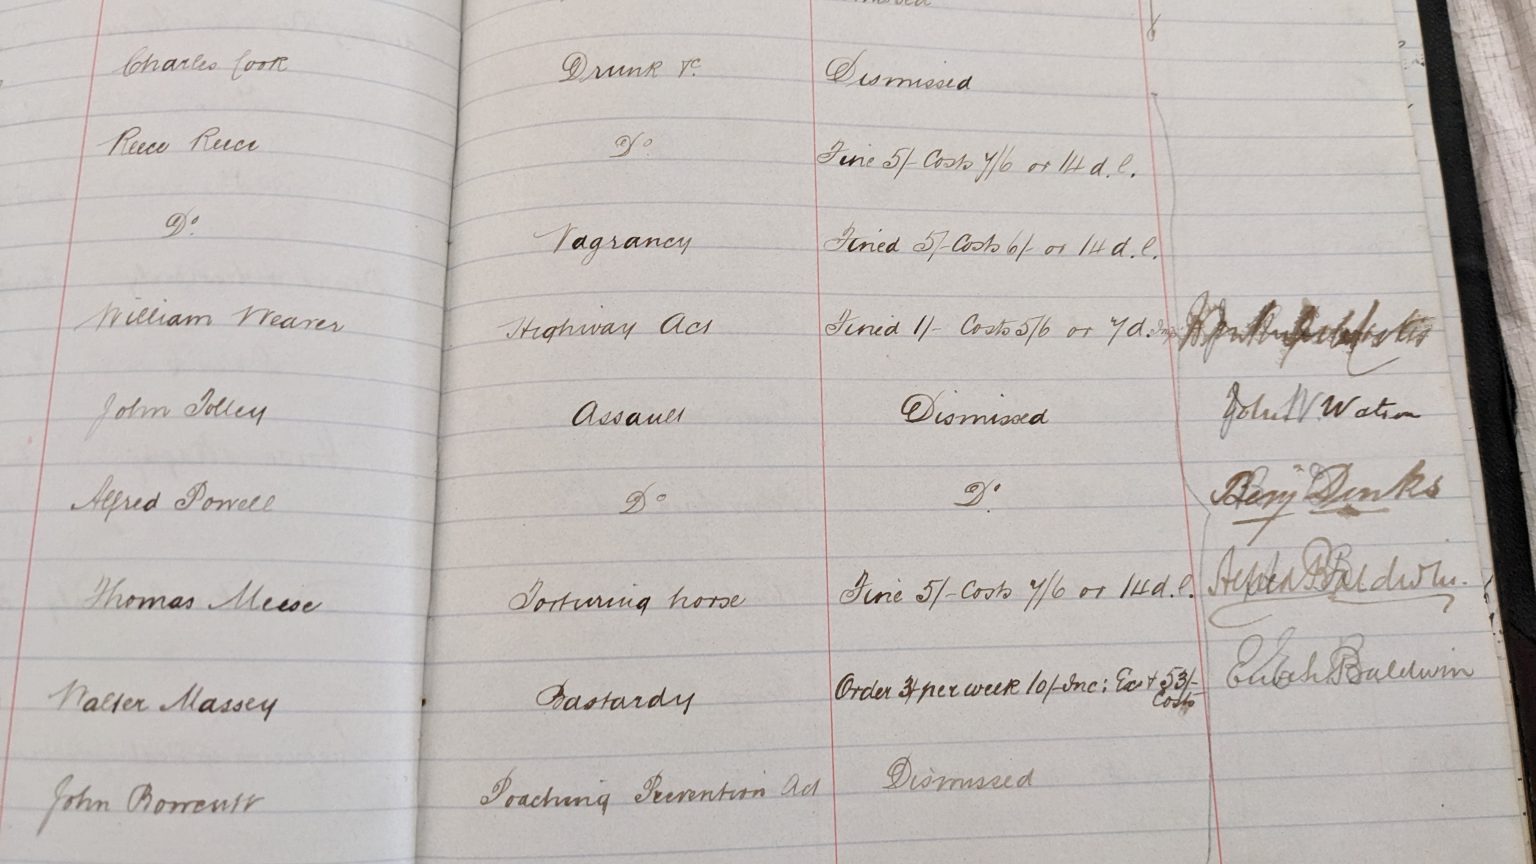 Charles Cook Drunk &c. Dismissed
Reece Reece Do. Fine 5/- Costs 7/6 or 14 d. l.
Do. Vagrancy Fined 5/- Costs 6/- or 14 d. l.
William Weaver Highway Act Fined 1/- Costs 5/6 or 7 d.
John Tolley Assault Dismissed John W. Watson
Alfred Powell Do. Do. Benj Danks
Thomas Meese Torturing horse Fine 5/- Costs 7/6 or 14 d. l. Alfred Baldwin.
Walter Massey Bastardy Order 3/ per week 10/- Inc: Ex & 53/- Baldwin
Costs
John Bowcutt Poaching Prevention Act Dismissed